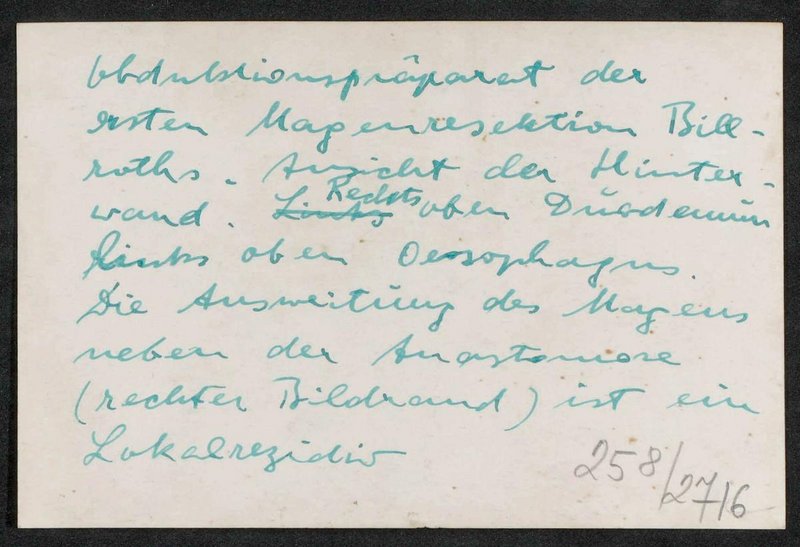 Obduktionspräparat der
ersten Magenresektion Bill-
roths. Ansicht der Hinter-
wand. Links Rechts oben Duodenum
links oben Oesophagus.
Die Ausweitung des Magens
neben der Anastomose
(rechter Bildrand) ist ein
Lokalrezidiv
258/2716